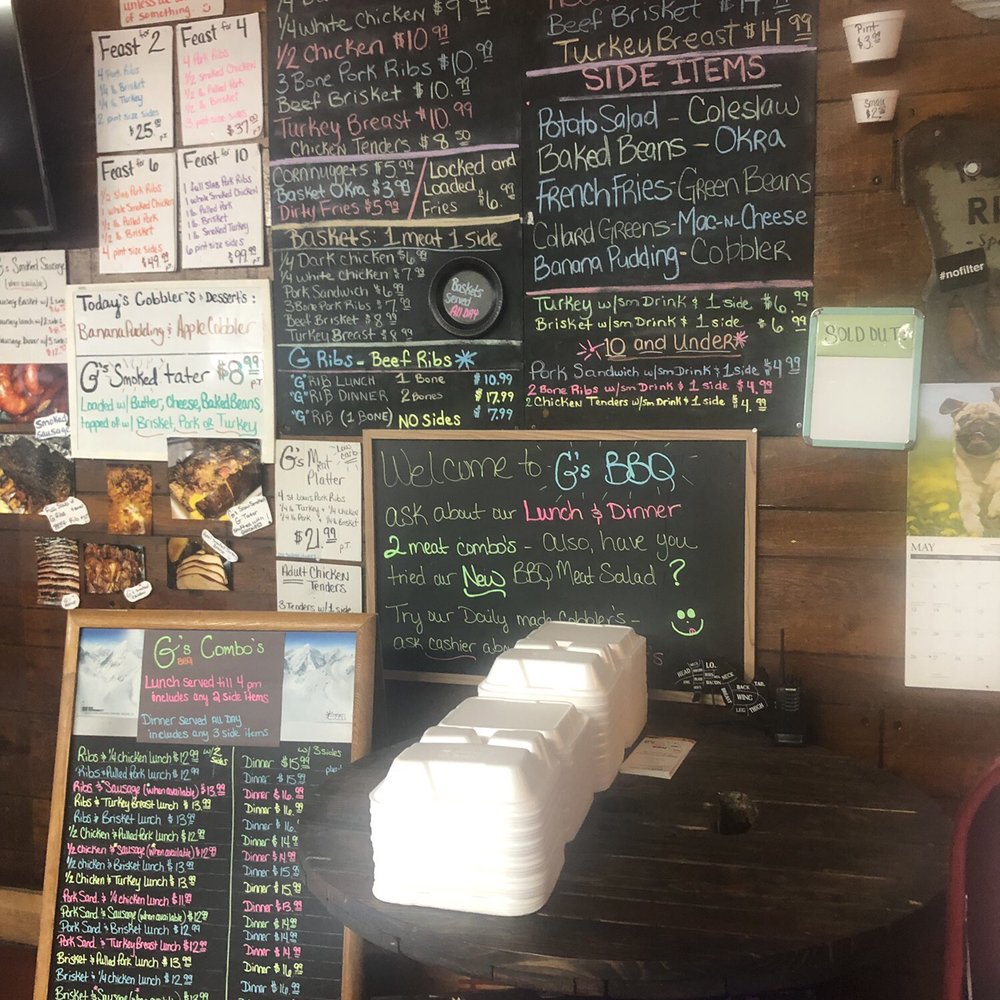 unless we
of something.
Feast for 2
4 Pork Ribs
1/4 lb Brisket
1/4 lb Turkey
2 pint size sides
$25.99
Feast for 4
4 Pork Ribs
1/2 Smoked Chicken
1/2 lb Pulled Pork
1/2 lb Brisket
3 pint sides
$37.99
Feast for 6
1/2 Slab Pork Ribs
1 whole Smoked Chicken
1/2 lb Pulled Pork
1/2 lb Brisket
4 pint size sides
$49.99
Feast for 10
1 full Slab Pork Ribs
1 whole Smoked Chicken
1 lb Pulled Pork
1 lb Brisket
1 lb Smoked Turkey
6 pint size sides
$99.99
1/4 White Chicken $9.99
1/2 Chicken $10.99
3 Bone Pork Ribs $10.99
Beef Brisket $10.99
Turkey Breast $10.99
Chicken Tenders $8.50
Cornnuggets $5.99
Basket Okra $3.99
Dirty Fries $5.99
Locked and
Loaded
Fries $6.99
Baskets: 1 meat 1 side
1/4 Dark chicken $6.99
1/4 white chicken $7.99
Pork Sandwich $6.99
3 Bone Pork Ribs $7.99
Beef Brisket $8.99
Turkey Breast $8.99
Baskets
Served
All Day
G Ribs - Beef Ribs
"G" Rib Lunch 1 Bone $10.99
"G" Rib Dinner 2 Bones $17.99
"G" Rib (1 Bone) No Sides $7.99
Beef Brisket $14.99
Turkey Breast $14.99
Side Items
Potato Salad - Coleslaw
Baked Beans - Okra
French Fries - Green Beans
Collard Greens - Mac-n-Cheese
Banana Pudding - Cobbler
Turkey w/sm Drink & 1 side $6.99
Brisket w/sm Drink & 1 side $6.99
10 and Under
Pork Sandwich w/sm Drink & 1 side $4.99
2 Bone Ribs w/sm Drink & 1 side $4.99
2 Chicken Tenders w/sm Drink & 1 side $4.99
Pint
$3.99
Small
#nofilter
SOLD OUT
MAY
G's Smoked Sausage
(when available)
Today's Cobbler's & Dessert's:
Banana Pudding & Apple Cobbler
G's Smoked tater $8.99
Loaded w/ Butter, Cheese, Baked Beans,
topped w/ Brisket, Pork or Turkey
Smoked
Sausage
G's Meat
Platter
Low
carb
4 St Louis Pork Ribs
1/4 lb Turkey & 1/4 Chicken
1/4 lb Pork & 1/4 lb Brisket
$21.99
Adult Chicken
Tenders
3 Tenders w/1 side
Welcome to G's BBQ
ask about our Lunch & Dinner
2 meat combo's - also, have you
tried our New BBQ Meat Salad?
Try our Daily made Cobbler's -
ask cashier
G's Combo's
BBQ
Lunch served till 4 pm
includes any 2 side items
Dinner Served All Day
includes any 3 side items
w/2 sides
w/3 sides
Ribs & 1/4 chicken lunch $12.99 Dinner $15.99
Ribs & Pulled Pork lunch $12.99 Dinner $15.99
Ribs & Sausage (when available) $13.99 Dinner $16.99
Ribs & Turkey Breast lunch $13.99 Dinner $16.99
Ribs & Brisket lunch $13.99 Dinner $16.
1/2 Chicken & Pulled Pork lunch $12.99 Dinner $14.99
1/2 chicken & Sausage (when available) $12.99 Dinner $14.99
1/2 chicken & Brisket lunch $13.99 Dinner $15.99
1/2 Chicken & Turkey lunch $13.99 Dinner $15.99
Pork Sand. & 1/4 chicken lunch $11.99 Dinner $13.99
Pork Sand & Sausage (when available) $12.99 Dinner $14.99
Pork Sand & Brisket lunch $12.99 Dinner $14.99
Pork Sand. & Turkey Breast lunch $12.99 Dinner $14.99
Brisket & Pulled Pork lunch $13.99 Dinner $16.99
Brisket & 1/4 chicken lunch $12.99
Brisket & Sausage (when available)
HEAD
NECK
BACK
TAIL
WING
LEG
THIGH